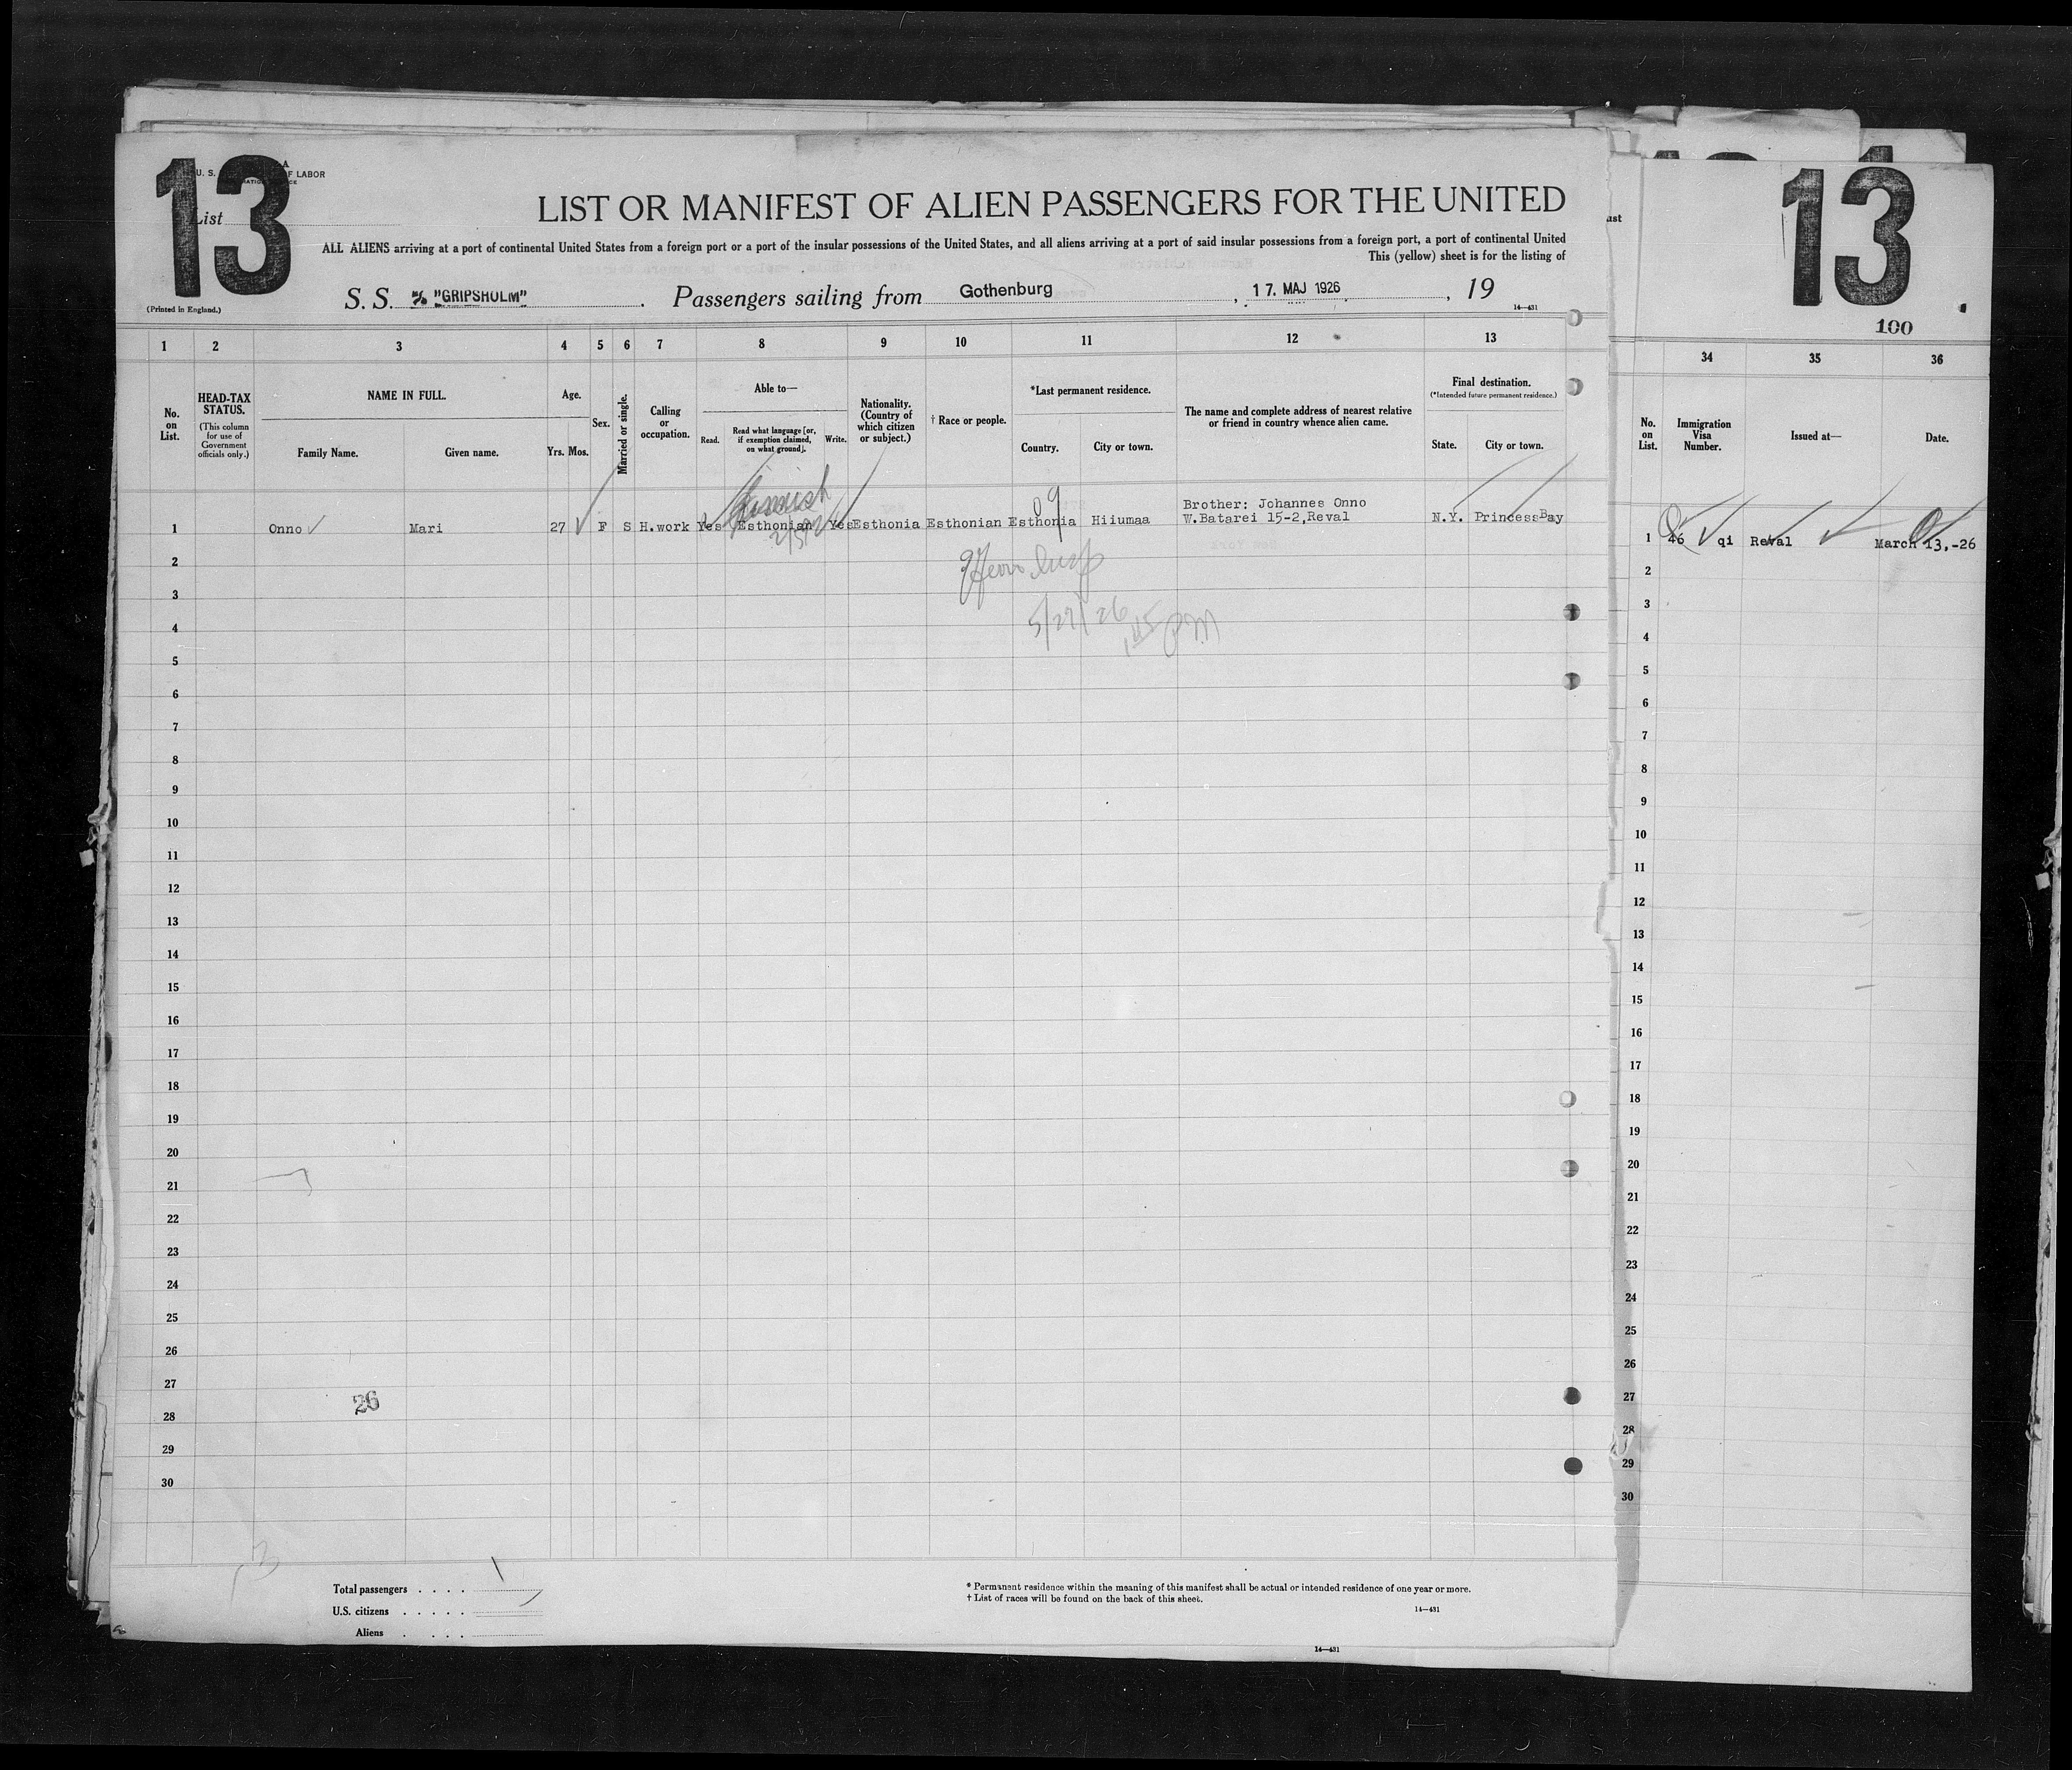 13
U. S.
F LABOR
List
LIST OR MANIFEST OF ALIEN PASSENGERS FOR THE UNITED
ALL ALIENS arriving at a port of continental United States from a foreign port or a port of the insular possessions of the United States, and all aliens arriving at a port of said insular possessions from a foreign port, a port of continental United
This (yellow) sheet is for the listing of
(Printed in England.)
S. S. "GRIPSHOLM" . Passengers sailing from Gothenburg , 17. MAJ 1926 , 19
14—431
1 2 3 4 5 6 7 8 9 10 11 12 13
No. on List.
HEAD-TAX STATUS.
(This column for use of Government officials only.)
NAME IN FULL.
Family Name. Given name.
Age.
Yrs. Mos.
Sex.
Married or single.
Calling or occupation.
Able to—
Read. Read what language [or, if exemption claimed, on what ground]. Write.
Nationality. (Country of which citizen or subject.)
† Race or people.
*Last permanent residence.
Country. City or town.
The name and complete address of nearest relative or friend in country whence alien came.
Final destination.
(*Intended future permanent residence.)
State. City or town.
Brother: Johannes Onno
1 Onno Mari 27 F S H.work Yes Esthonian Yes Esthonia Esthonian Esthonia Hiiumaa W.Batarei 15-2,Reval N.Y. Princess Bay
09
2
3
5/27/26
4
145 PM
5
6
7
8
9
10
11
12
13
14
15
16
17
18
19
20
21
22
23
24
25
26
27
26
28
29
30
Total passengers . . . .
U.S. citizens . . . . .
Aliens . . . .
* Permanent residence within the meaning of this manifest shall be actual or intended residence of one year or more.
† List of races will be found on the back of this sheet.
14—431
14—431
13
100
34 35 36
No. on List.
Immigration Visa Number.
Issued at—
Date.
1 46 qi Reval March 13,-26
2
3
4
5
6
7
8
9
10
11
12
13
14
15
16
17
18
19
20
21
22
23
24
25
26
27
28
29
30